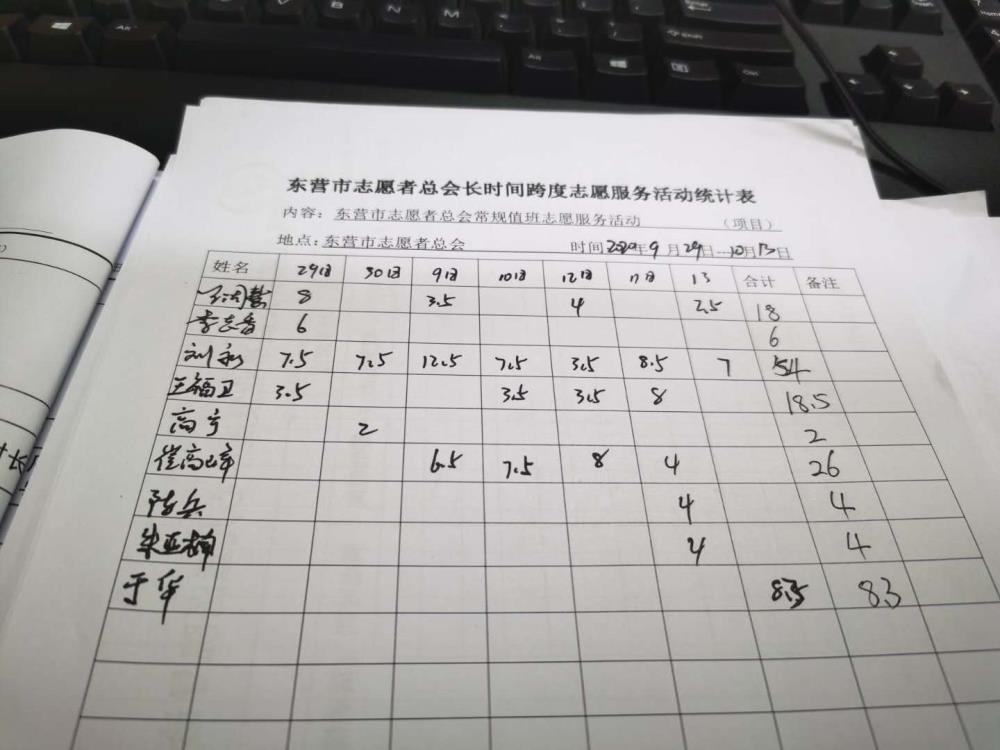 东营市志愿者总会长时间跨度志愿服务活动统计表
内容：东营市志愿者总会常规值班志愿服务活动 （项目）
地点：东营市志愿者总会 时间2020年9月29日---10月13日
姓名 29日 30日 9日 10日 12日 11日 13 合计 备注
8 3.5 4 2.5 18
李志香 6 6
刘 7.5 7.5 12.5 7.5 3.5 8.5 7 54
王福卫 3.5 3.5 3.5 8 18.5
高宁 2 2
崔高峰 6.5 7.5 8 4 26
陈兵 4 4
朱亚楠 4 4
于华 8.5 83